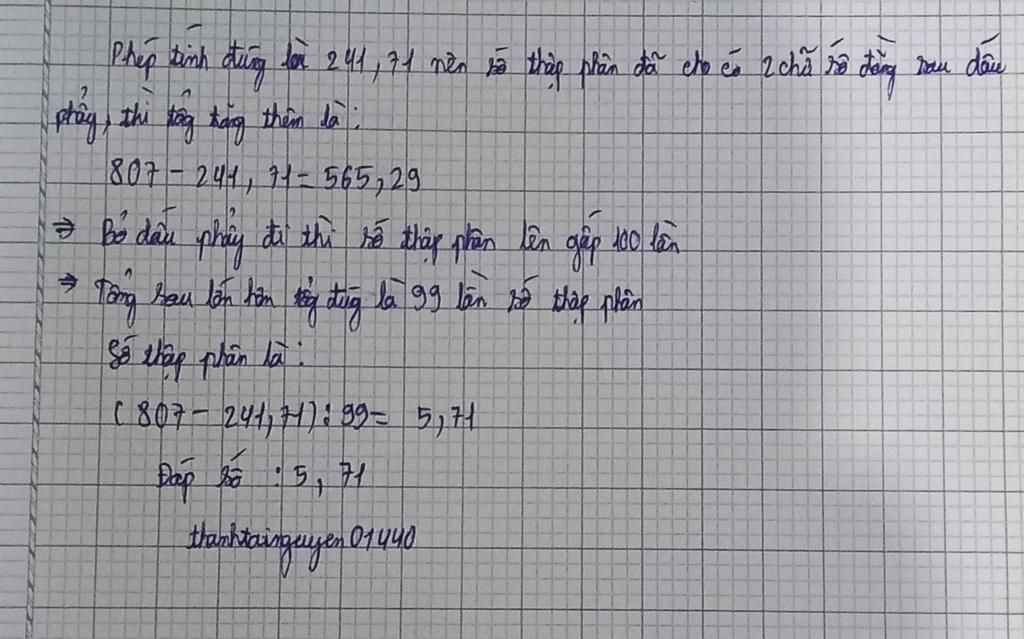 Phép tính đúng là 241,71 nên số thập phân đã cho có 2 chữ số đằng sau dấu
phẩy, thì tổng tăng thêm là:
807 - 241,71 = 565,29
⇒ Bỏ dấu phẩy đi thì số thập phân lên gấp 100 lần
⇒ Tổng sau lớn hơn tổng đúg là 99 lần số thập phân
Số thập phân là:
(807 - 241,71) : 99 = 5,71
Đáp số : 5,71
thanhtainguyen01440